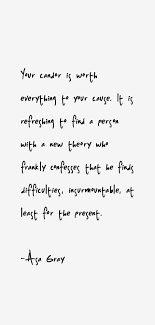 Your candor is worth
everything to your cause. It is
refreshing to find a person
with a new theory who
frankly confesses that he finds
difficulties, insurmountable, at
least for the present.
-Asa Gray